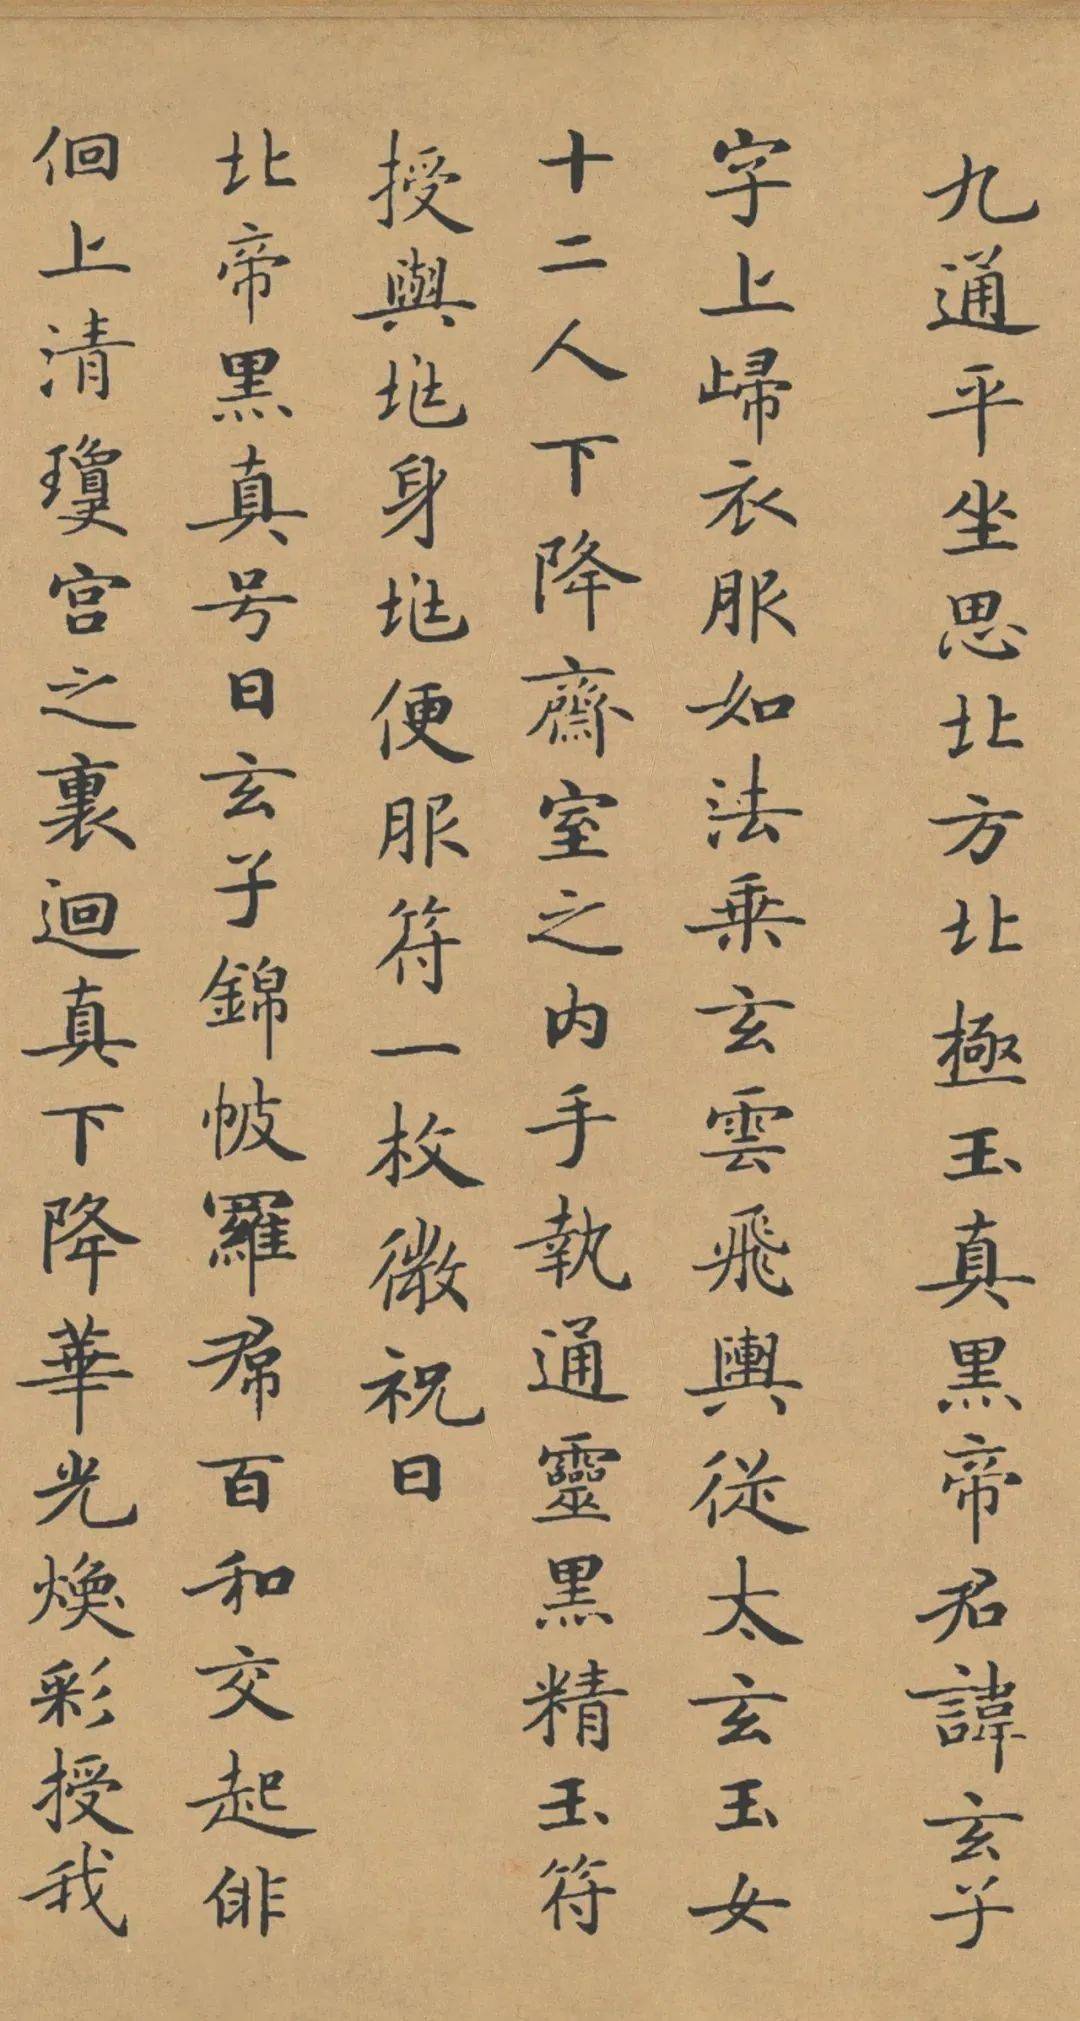 九通平坐思北方北極玉真黑帝君諱玄子
字上歸衣服如法乘玄雲飛輿從太玄玉女
十二人下降齋室之内手執通靈黑精玉符
授與兆身兆便服符一枚微祝曰
北帝黑真号曰玄子錦帔羅帬百和交起俳
佪上清瓊宫之裏迴真下降華光煥彩授我